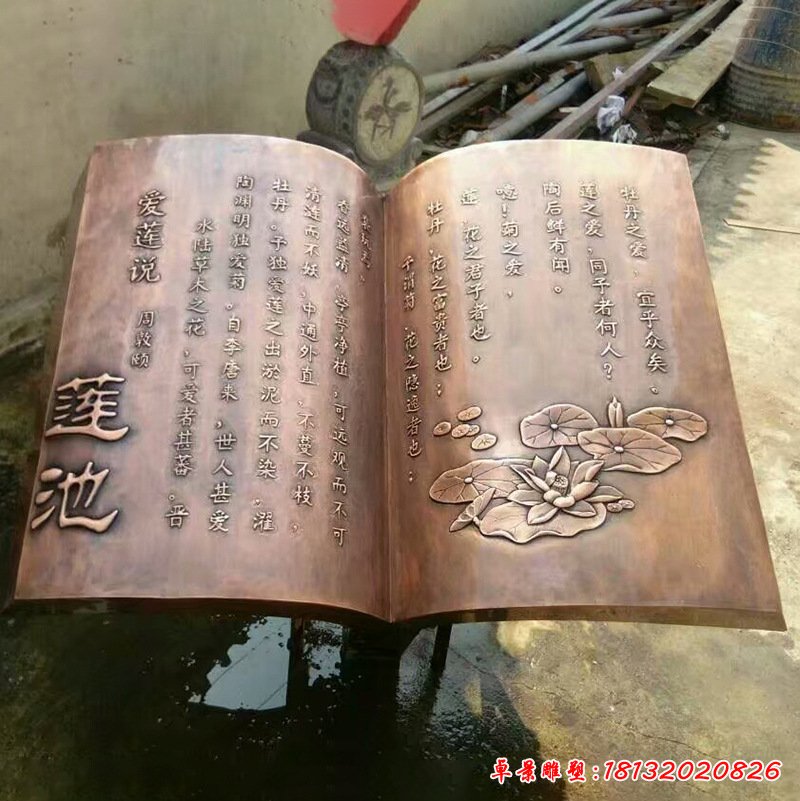 莲池
爱莲说
周敦颐
水陆草木之花，可爱者甚蕃。晋
陶渊明独爱菊。自李唐来，世人甚爱
牡丹。予独爱莲之出淤泥而不染，濯
清涟而不妖，中通外直，不蔓不枝，
香远益清，亭亭净植，可远观而不可
亵玩焉。
予谓菊，花之隐逸者也；
牡丹，花之富贵者也；
莲，花之君子者也。
噫！菊之爱，
陶后鲜有闻。
莲之爱，同予者何人？
牡丹之爱，宜乎众矣。
卓景雕塑:18132020826